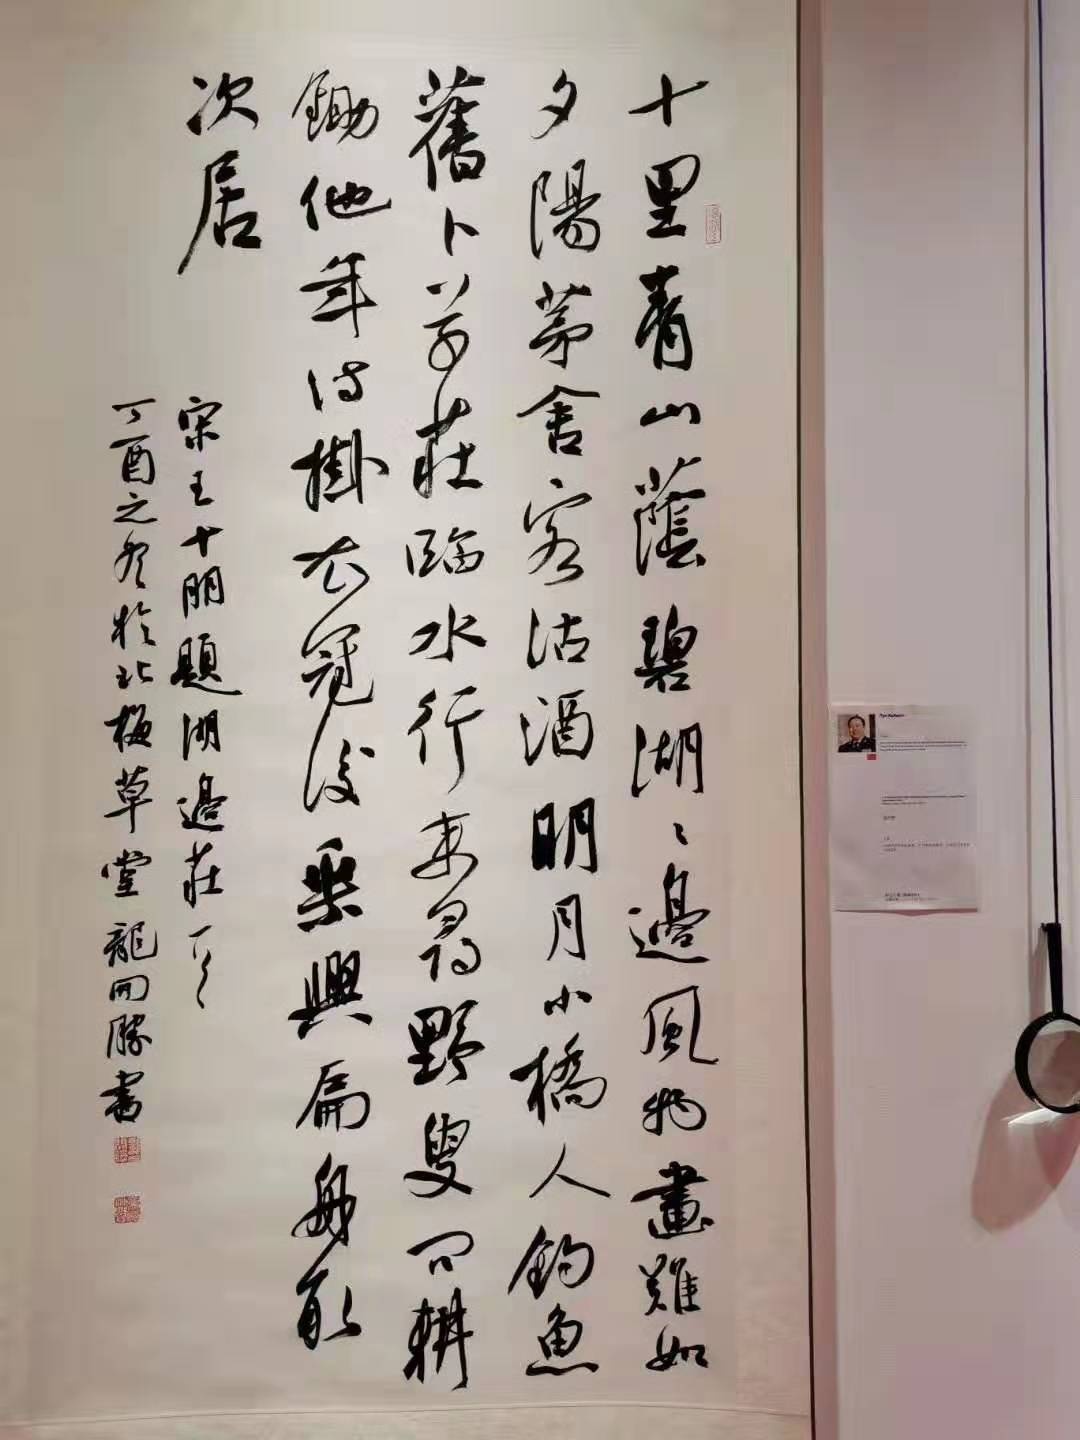 十里青山蔭碧湖〻邊風物畫難如
夕陽茅舍客沽酒明月小橋人釣魚
舊卜草莊臨水行來尋野叟問耕
鋤他年得掛衣冠後乘興扁舟取
次居
宋王十朋題湖邊莊一首
丁酉之冬於北梅草堂龍開勝書